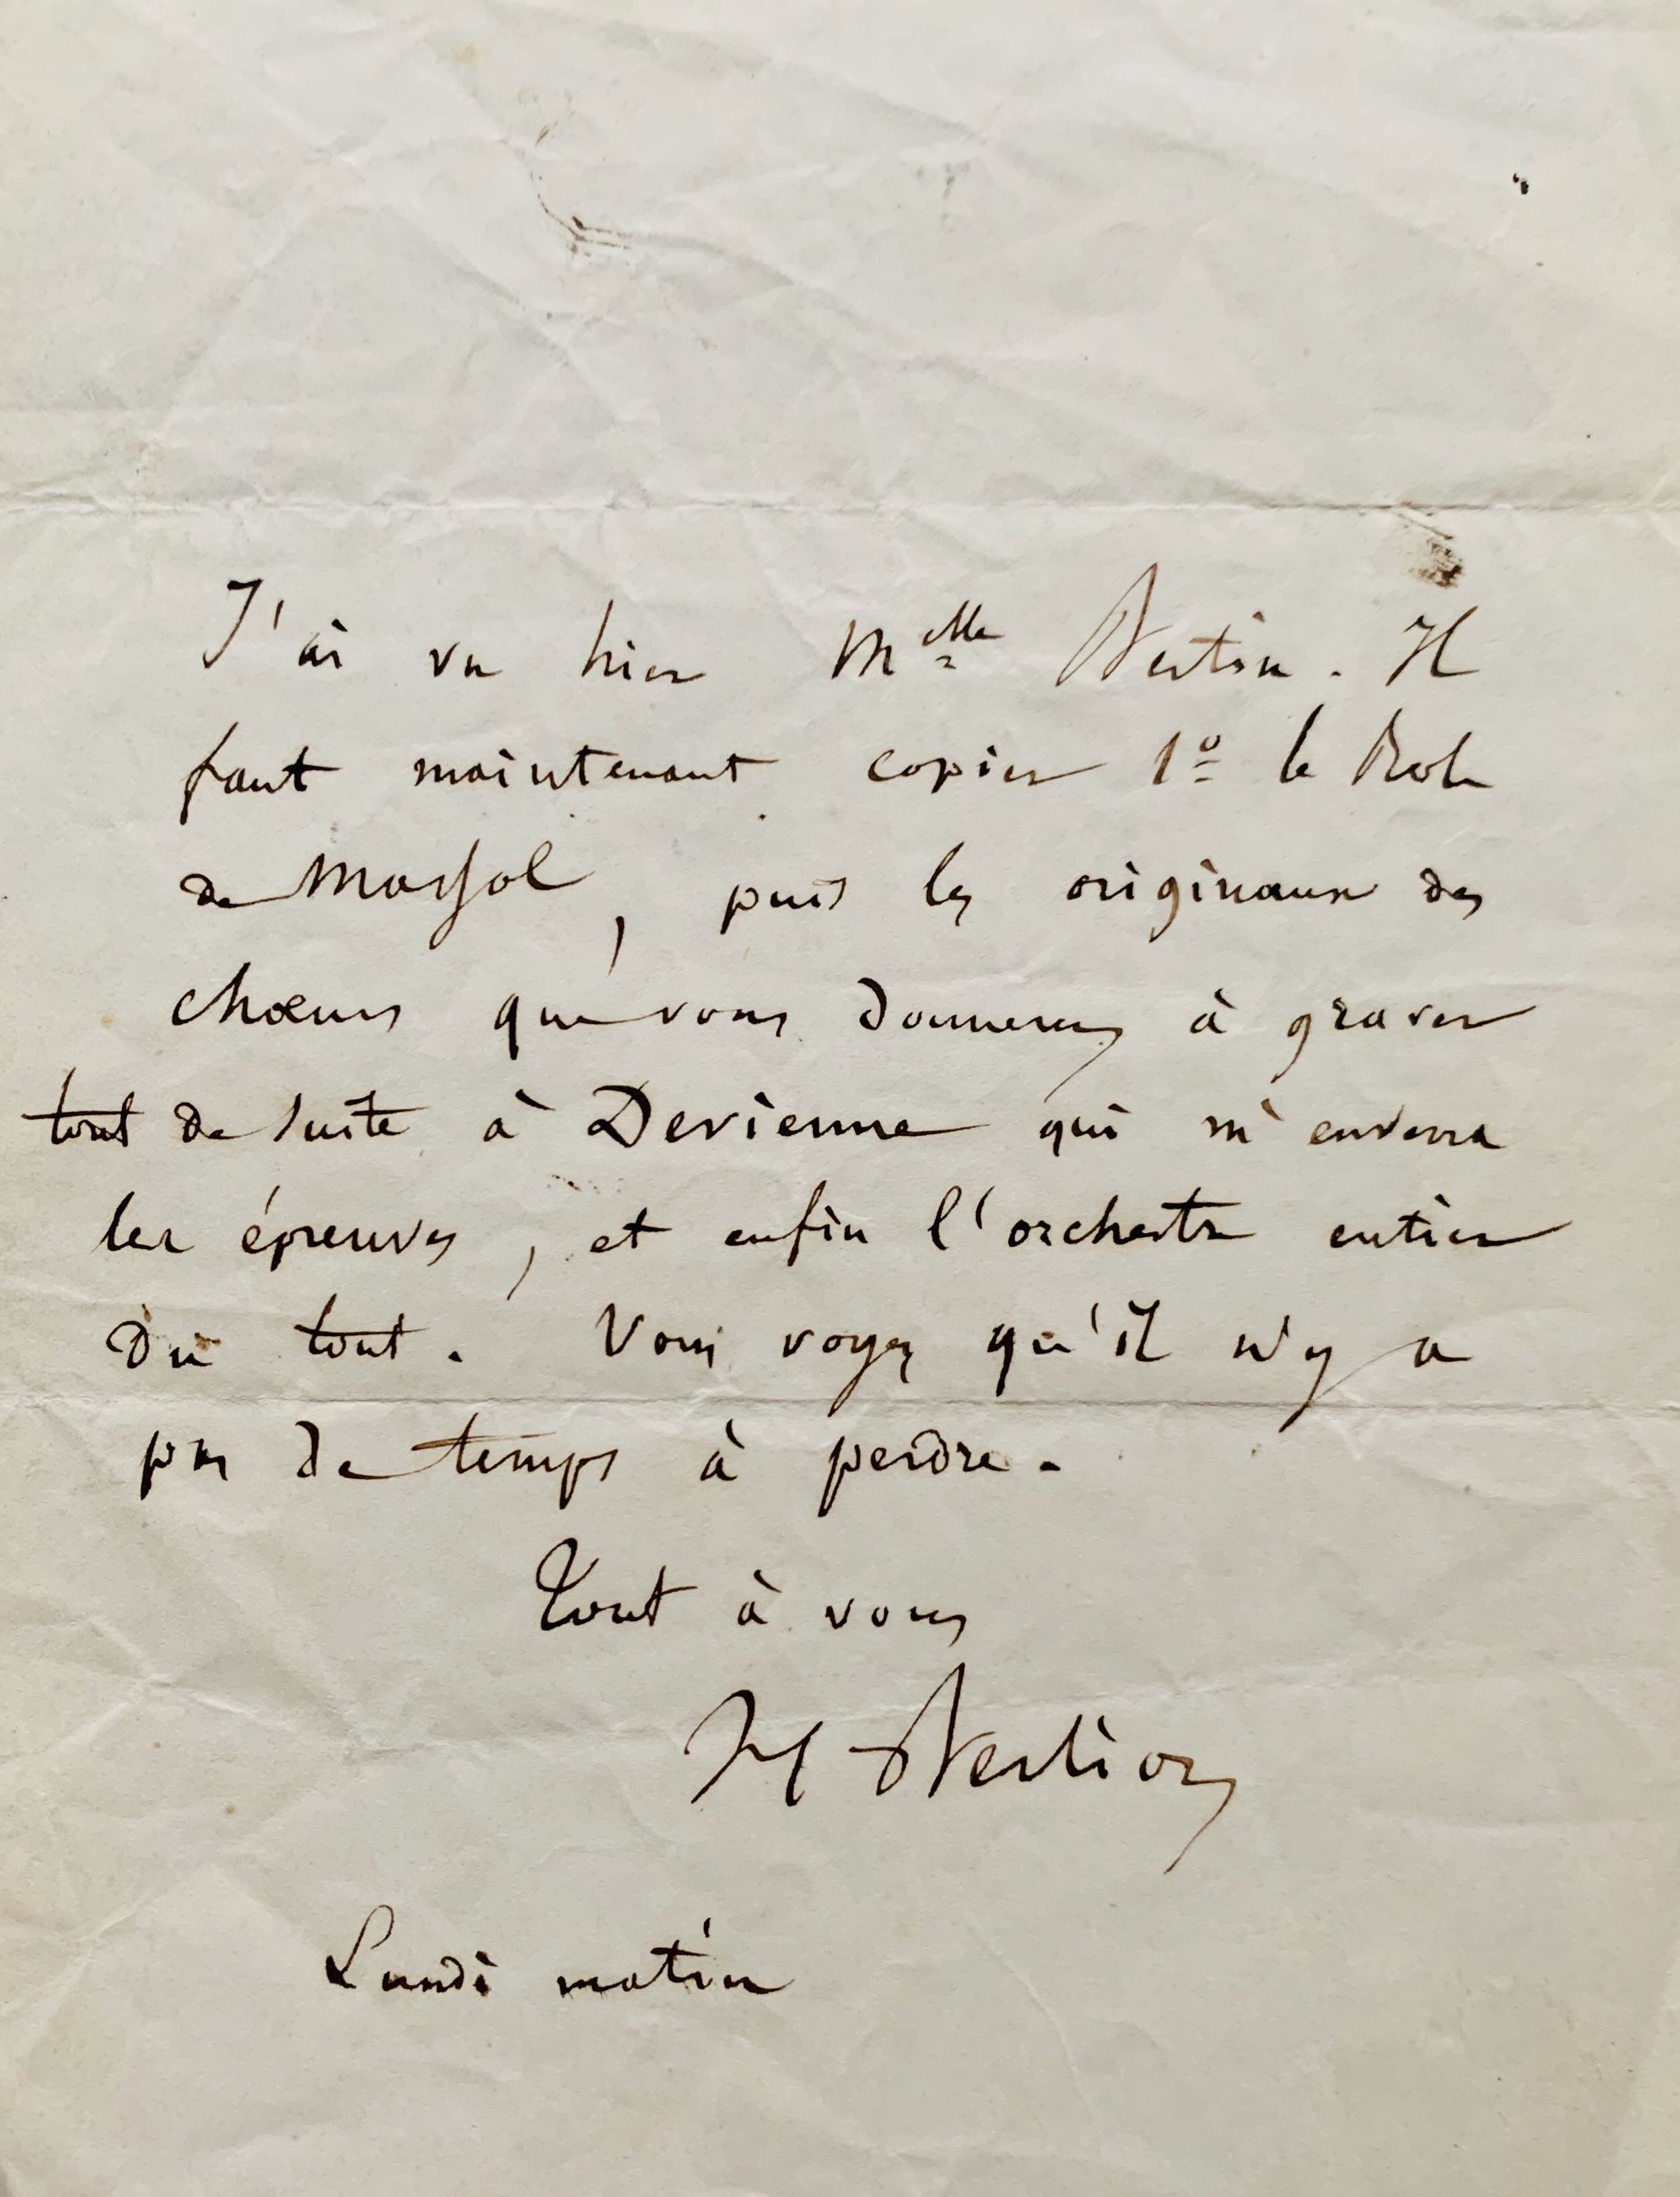 J'ai vu hier Melle Bertin. Il
faut maintenant copier 1º le Role
de Massol, puis les originaux des
chœurs que vous donnerez à graver
tout de suite à Devienne qui m'enverra
les épreuves, et enfin l'orchestre entier
du tout. Vous voyez qu'il n'y a
pas de temps à perdre.
Tout à vous
H Berlioz
Lundi matin